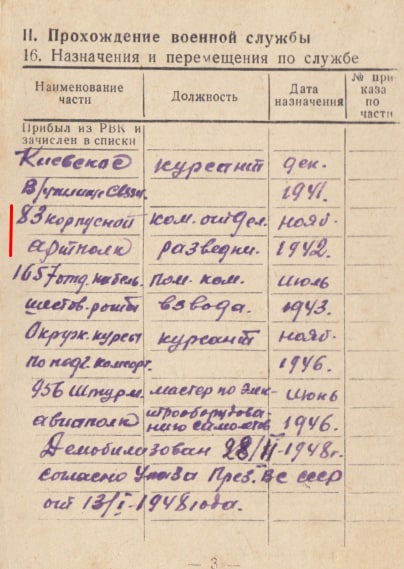 II. Прохождение военной службы
16. Назначения и перемещения по службе
Наименование части Должность Дата назначения № приказа по части
Прибыл из РВК и
зачислен в списки
Киевское курсант дек.
В/училище связи. 1941.
83 корпусной ком. отдел. нояб.
артполк разведки. 1942.
1657 отд. кабель. пом. ком. июль
шестов. роты взвода. 1943.
Окруж. курсы курсант нояб.
по подг. комсорг. 1946.
956 Штурм. мастер по элек- июнь
авиаполк трооборудова- 1946.
нию самолетов
Демобилизован 28/II-1948г.
согласно Указа През. ВС СССР
от 13/I-1948 года.
— 3 —